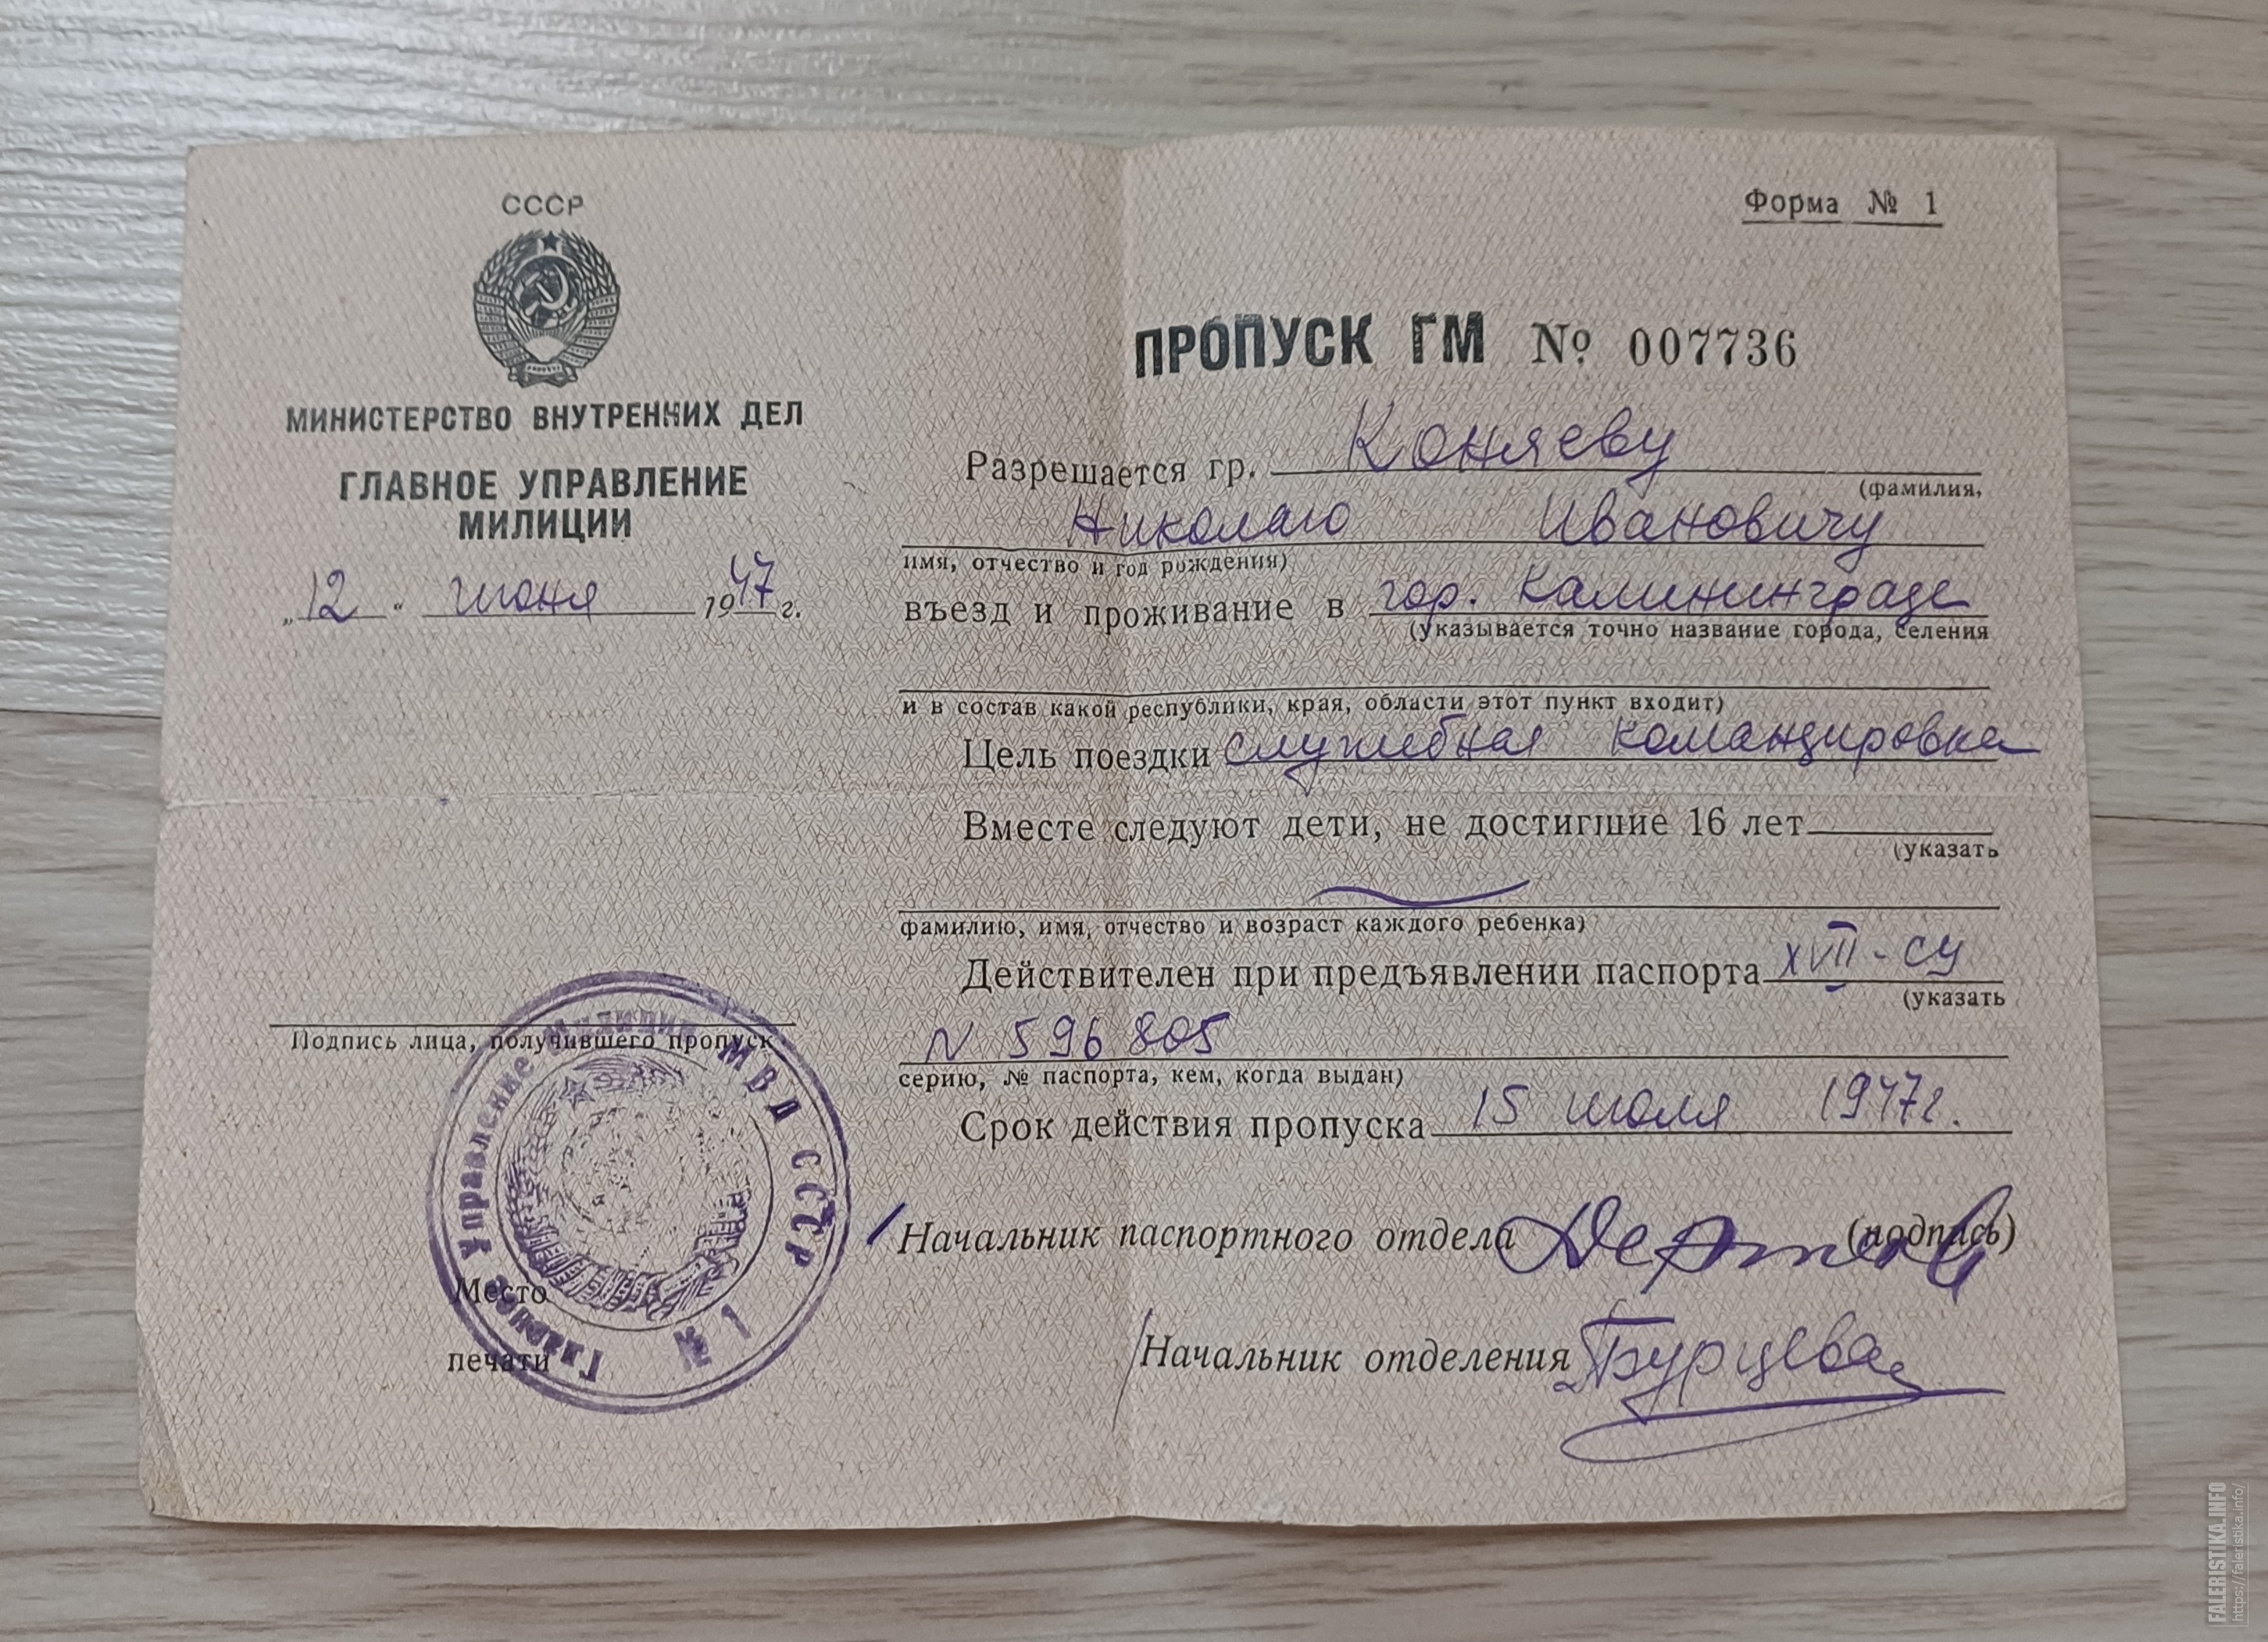 СССР
МИНИСТЕРСТВО ВНУТРЕННИХ ДЕЛ
ГЛАВНОЕ УПРАВЛЕНИЕ
МИЛИЦИИ
„12“ июня 1947 г.
Подпись лица, получившего пропуск
Главное Управление Милиции МВД СССР
№ 1
Место
печати
Форма № 1
ПРОПУСК ГМ № 007736
Разрешается гр. Коняеву
(фамилия,
Николаю Ивановичу
имя, отчество и год рождения)
въезд и проживание в гор. Калининграде
(указывается точно название города, селения
и в состав какой республики, края, области этот пункт входит)
Цель поездки служебная командировка
Вместе следуют дети, не достигшие 16 лет
(указать
фамилию, имя, отчество и возраст каждого ребенка)
Действителен при предъявлении паспорта XVII-СУ
(указать
N 596805
серию, № паспорта, кем, когда выдан)
Срок действия пропуска 15 июля 1947г.
Начальник паспортного отдела (подпись)
Начальник отделения Бурцева
FALERISTIKA.INFO
https://faleristika.info/